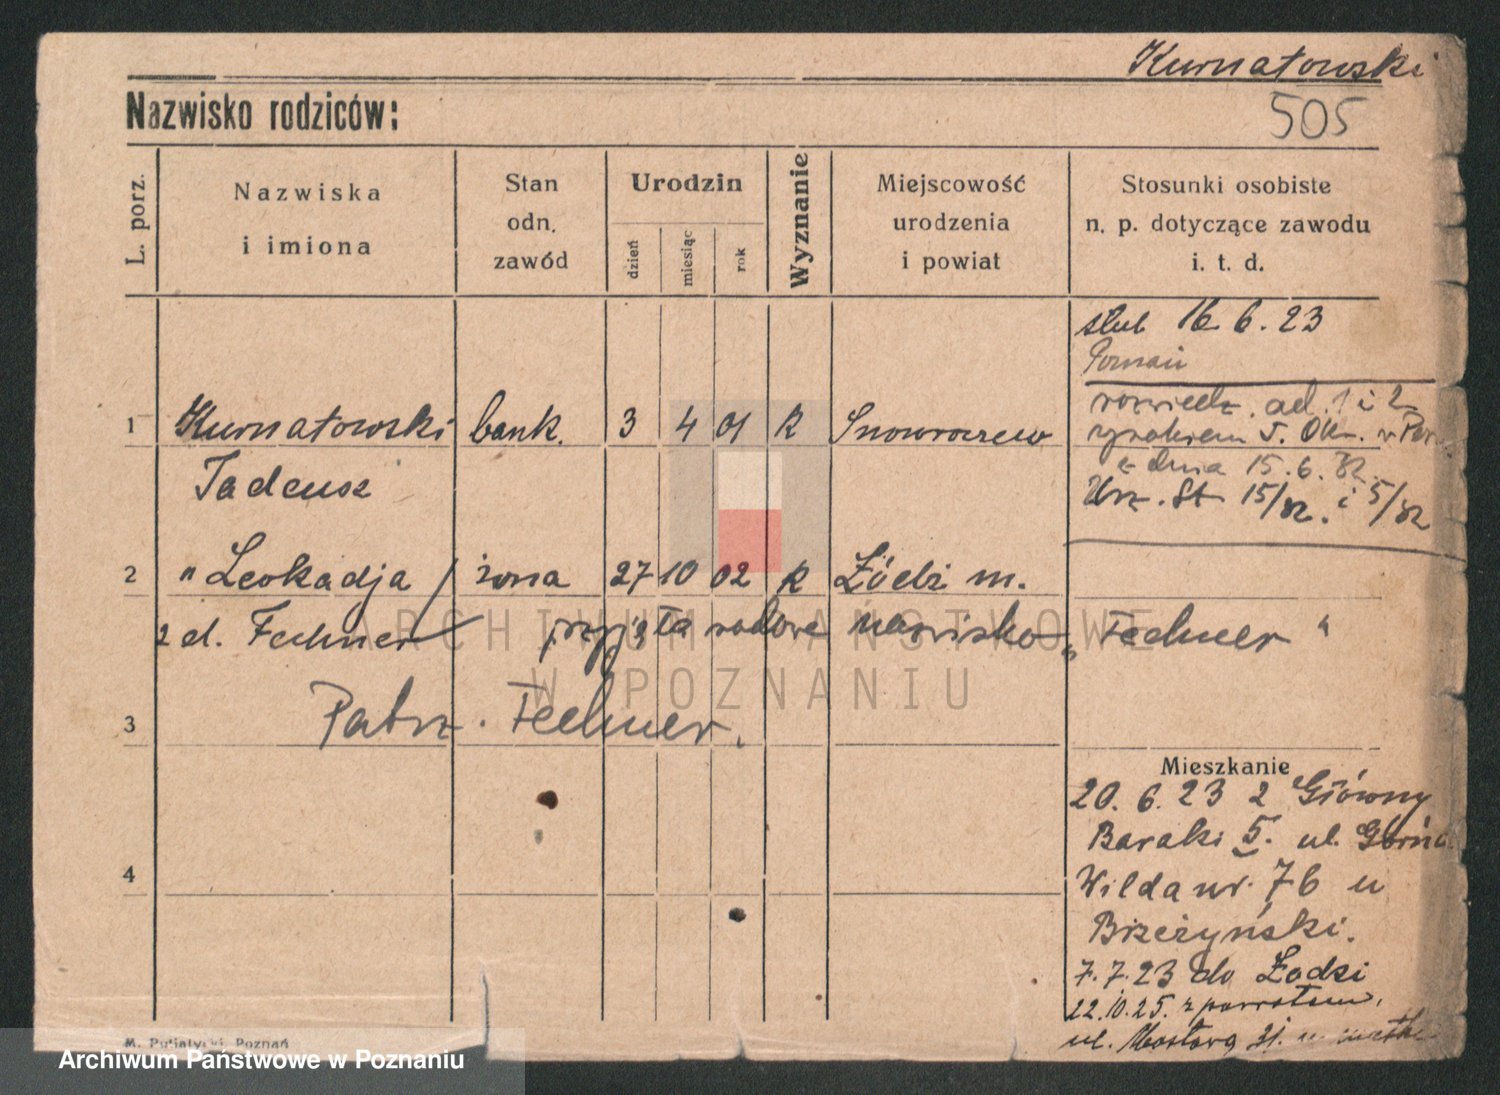 Kurnatowski
505
Nazwisko rodziców:
L. porz.
Nazwiska
i imiona
Stan
odn.
zawód
Urodzin
dzień
miesiąc
rok
Wyznanie
Miejscowość
urodzenia
i powiat
Stosunki osobiste
n. p. dotyczące zawodu
i. t. d.
ślub 16. 6. 23
Poznań
rozwiedz. ad. 1 i 2
wyrokiem S. Ok. w
z dnia 15. 6. 32.
Urz. St 15/32. i 5/32
1 Kurnatowski bank. 3 4 01 k Inowrocław
Tadeusz
2 " Leokadja / żona 27 10 02 k Łódź m.
z d. Fechner przyjęła rodowe nazwisko „Fechner"
3 Patrz. Fechner.
4
Mieszkanie
20. 6. 23 z Główny
Baraki 5. ul. Górna
Wilda nr. 76 u
Brzeżyński.
7. 7. 23 do Łodzi
22. 10. 25. z powrotem,
ul. Mostowa 21. u matki
M. Putiatycki, Poznań
ARCHIWUM PAŃSTWOWE
W POZNANIU
Archiwum Państwowe w Poznaniu